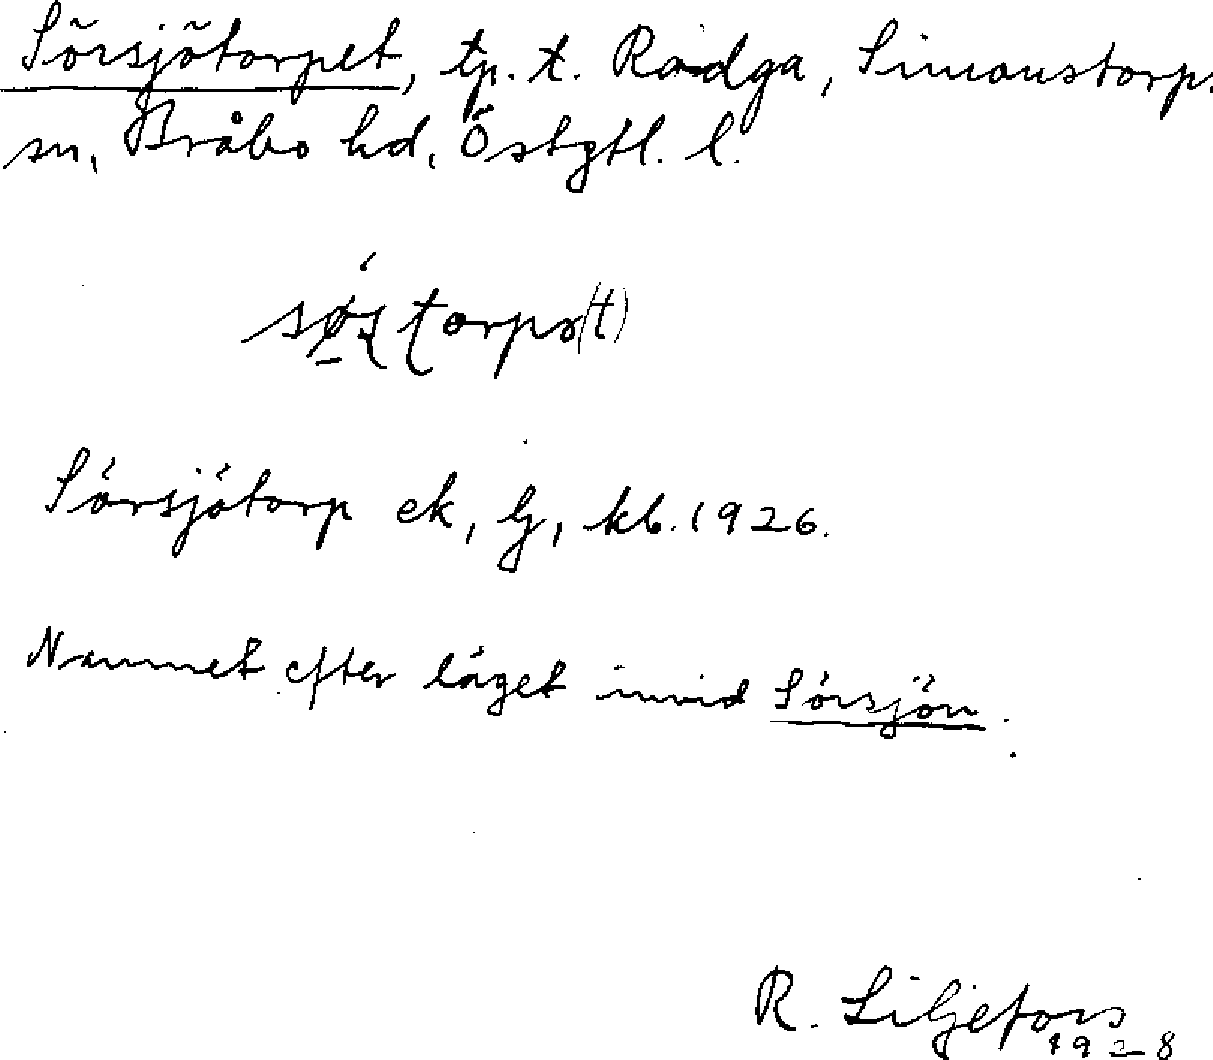 Sörsjötorpet, tp. t. Rodga, Simonstorp.
sn, Bråbo hd, Östgtl. l.
Sörsjötorp ek, lj, kb. 1926.
Namnet efter läget invid Sörsjön.
R. Liljefors
1928